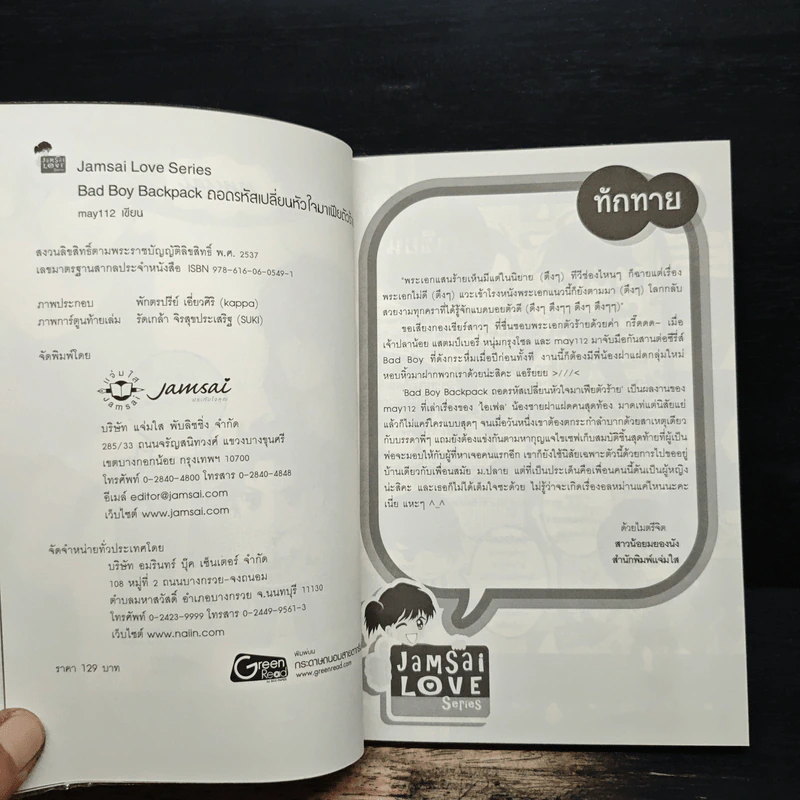 JAMSAI
LOVE
Series
Jamsai Love Series
Bad Boy Backpack ถอดรหัสเปลี่ยนหัวใจมาเฟียตัวร้
may112 เขียน
สงวนลิขสิทธิ์ตามพระราชบัญญัติลิขสิทธิ์ พ.ศ. 2537
เลขมาตรฐานสากลประจำหนังสือ ISBN 978-616-06-0549-1
ภาพประกอบ พักตรปรีย์ เอี่ยวศิริ (kappa)
ภาพการ์ตูนท้ายเล่ม รัดเกล้า จิรสุขประเสริฐ (SUKI)
จัดพิมพ์โดย
แจ่มใส
Jamsai
Jamsai
บริษัท แจ่มใส พับลิชชิ่ง จำกัด
285/33 ถนนจรัญสนิทวงศ์ แขวงบางขุนศรี
เขตบางกอกน้อย กรุงเทพฯ 10700
โทรศัพท์ 0-2840-4800 โทรสาร 0-2840-4848
อีเมล์ editor@jamsai.com
เว็บไซต์ www.jamsai.com
จัดจำหน่ายทั่วประเทศโดย
บริษัท อมรินทร์ บุ๊ค เซ็นเตอร์ จำกัด
108 หมู่ที่ 2 ถนนบางกรวย-จงถนอม
ตำบลมหาสวัสดิ์ อำเภอบางกรวย จ.นนทบุรี 11130
โทรศัพท์ 0-2423-9999 โทรสาร 0-2449-9561-3
เว็บไซต์ www.naiin.com
ราคา 129 บาท
Green
Read
พิมพ์บน
กระดาษถนอมสายตากรีน
www.greenread.com
ทักทาย
'พระเอกแสนร้ายเห็นมีแต่ในนิยาย (ตึงๆ) ทีวีช่องไหนๆ ก็ฉายแต่เรื่อง
พระเอกไม่ดี (ตึงๆ) แวะเข้าโรงหนังพระเอกแนวนี้ก็ยังตามมา (ตึงๆ) โลกกลับ
สวยงามทุกคราที่ได้รู้จักแบดบอยตัวดี (ตึงๆ ตึงๆๆ ตึงๆ ตึงๆๆ)'
ขอเสียงกองเชียร์สาวๆ ที่ชื่นชอบพระเอกตัวร้ายด้วยค่า กรี๊ดดด~ เมื่อ
เจ้าปลาน้อย แสตมป์เบอรี่ หนุ่มกรุงโซล และ may112 มาจับมือกันสานต่อซีรี่ส์
Bad Boy ที่ดังกระหึ่มเมื่อปีก่อนทั้งที งานนี้ก็ต้องมีพี่น้องฝาแฝดกลุ่มใหม่
หอบหิ้วมาฝากพวกเราด้วยน่ะสิคะ แอร๊ยยย >///<
'Bad Boy Backpack ถอดรหัสเปลี่ยนหัวใจมาเฟียตัวร้าย' เป็นผลงานของ
may112 ที่เล่าเรื่องของ 'ไอเฟล' น้องชายฝาแฝดคนสุดท้อง มาดเท่แต่นิสัยแย่
แล้วก็ไม่แคร์ใครแบบสุดๆ จนเมื่อวันหนึ่งเขาต้องตกระกำลำบากด้วยสาเหตุเดียว
กับบรรดาพี่ๆ แถมยังต้องแข่งกันตามหากุญแจไขเซฟเก็บสมบัติชิ้นสุดท้ายที่ผู้เป็น
พ่อจะมอบให้กับผู้ที่หาเจอคนแรกอีก เขาก็ยังใช้นิสัยเฉพาะตัวนี้ด้วยการไปขออยู่
บ้านเดียวกับเพื่อนสมัย ม.ปลาย แต่ที่เป็นประเด็นคือเพื่อนคนนี้ดันเป็นผู้หญิง
น่ะสิคะ และเธอก็ไม่ได้เต็มใจซะด้วย ไม่รู้ว่าจะเกิดเรื่องอลหม่านแค่ไหนนะคะ
เนี่ย แหะๆ ^_^
ด้วยไมตรีจิต
สาวน้อยมยองนัง
สำนักพิมพ์แจ่มใส
JAMSAI
LOVE
Series